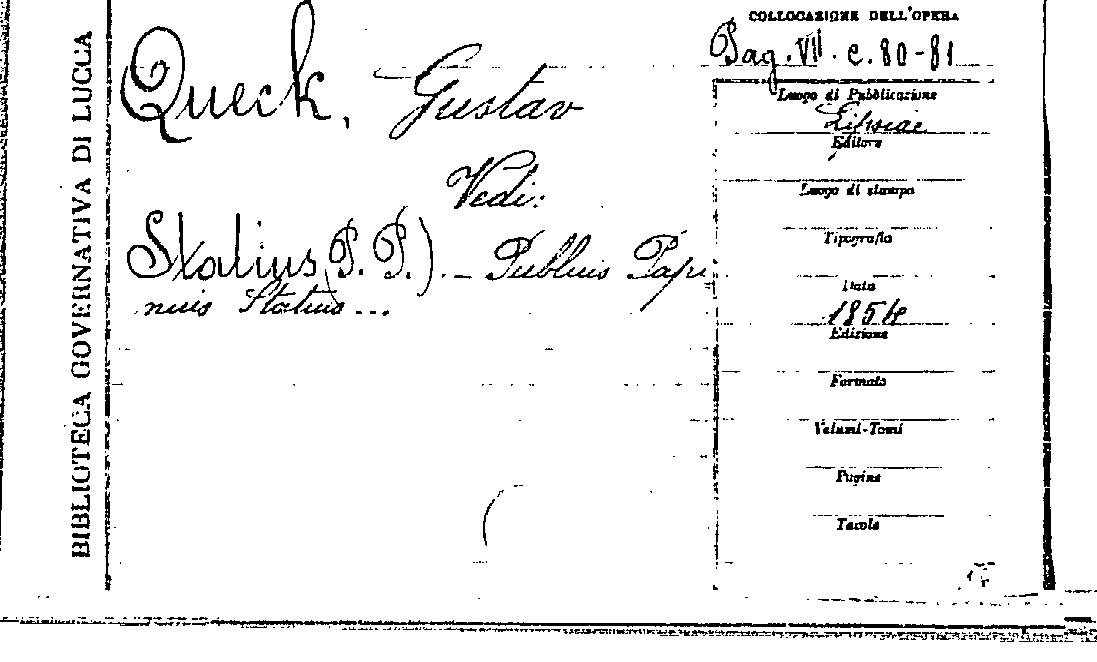 BIBLIOTECA GOVERNATIVA DI LUCCA
Queck, Gustav
Vedi:
Statius (P. P.). - Publius Papi
nius Statius...
COLLOCAZIONE DELL'OPERA
Pag. VII. c. 80-81
Luogo di Pubblicazione
Lipsiae
Editore
Luogo di stampa
Tipografia
Data
1854
Edizione
Formato
Volumi-Tomi
Pagine
Tavole